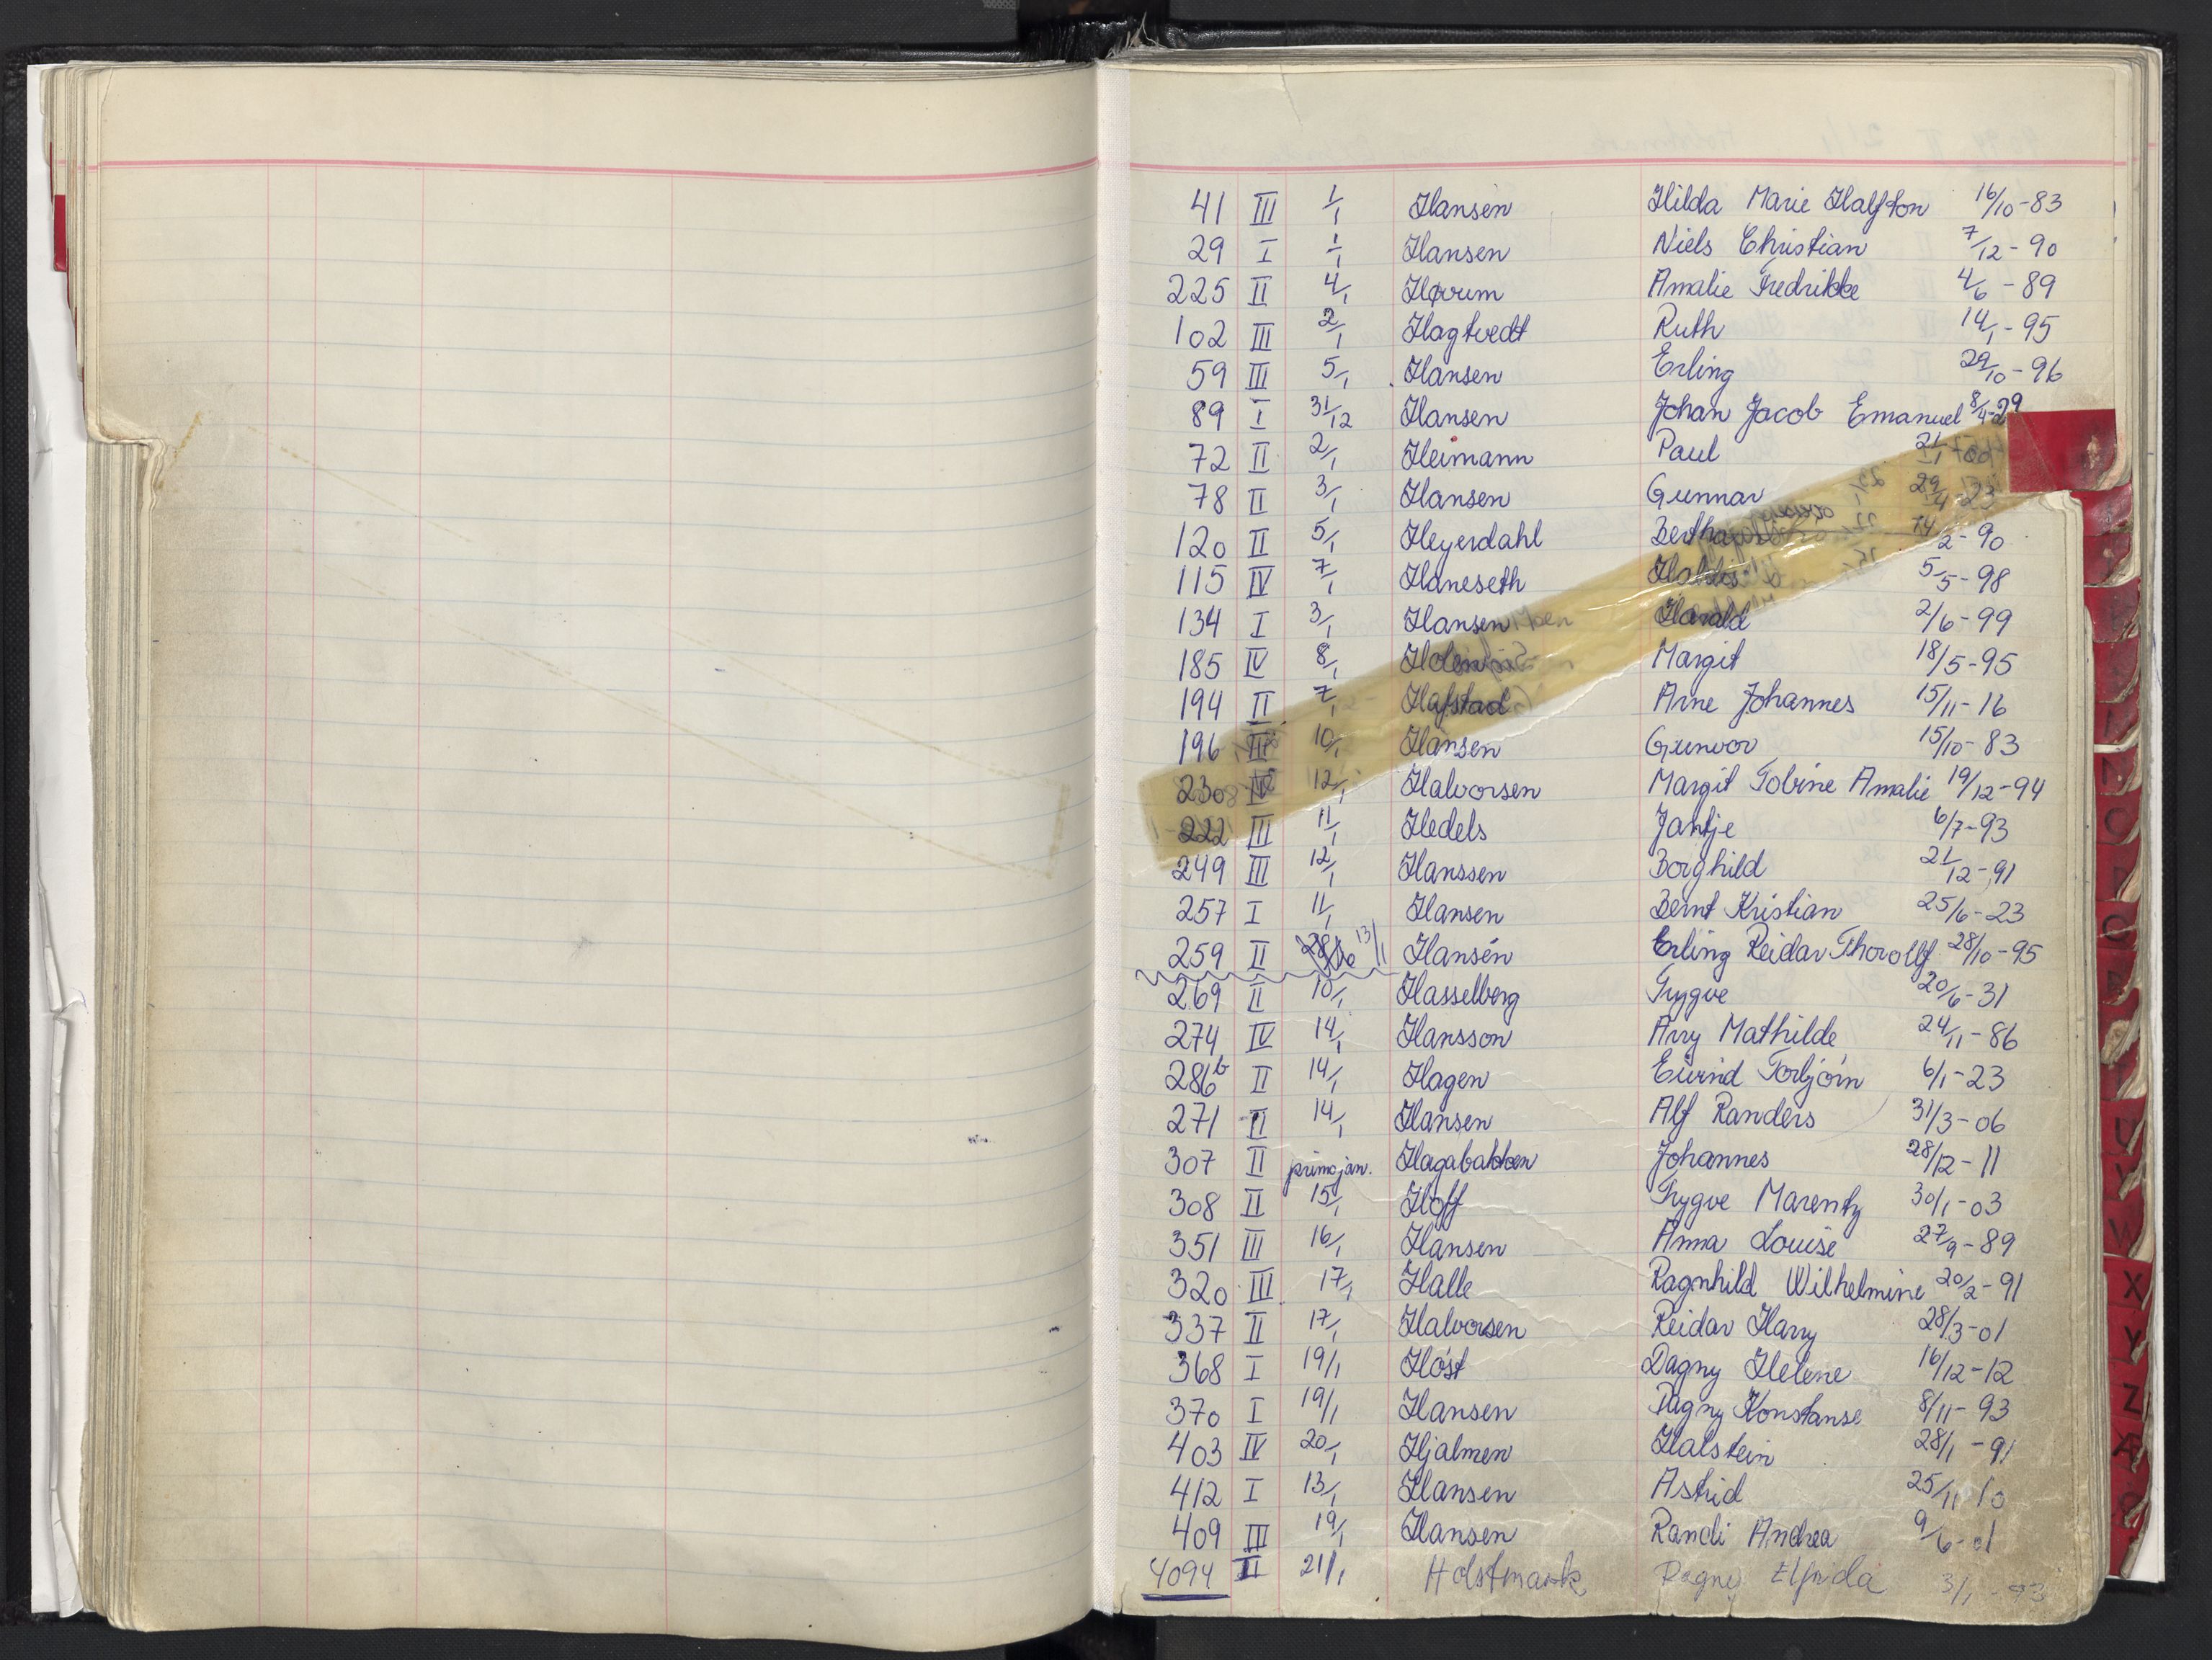 41 III 1/1 Hansen Hilda Marie Halfton 16/10-83
29 I 1/1 Hansen Niels Christian 7/12-90
225 II 4/1 Hørum Amalie Fredrikke 4/6-89
102 III 2/1 Hagtvedt Ruth 14/1-95
59 III 5/1 Hansen Erling 29/10-96
89 I 31/12 Hansen Johan Jacob Emanuel 8/4-29
72 II 2/1 Heimann Paul
78 II 3/1 Hansen Gunnar 29/4-23
120 II 5/1 Heyerdahl Bertha 2-90
115 IV 7/1 Haneseth 5/5-98
134 I 3/1 Hansen Harald 2/6-99
185 IV 8/1 Margit 18/5-95
194 II 7/1 Hafstad Arne Johannes 15/11-16
196 III 10/1 Hansen Gunvor 15/10-83
230 IV 12/1 Halvorsen Margit Tobine Amalie 19/12-94
222 III 11/1 Hedels Jantje 6/7-93
249 III 12/1 Hanssen Borghild 21/12-91
257 I 11/1 Hansen Bernt Kristian 25/6-23
259 II 13/1 Hansen Erling Reidar Thorolf 28/10-95
269 II 10/1 Hasselberg Trygve 20/6-31
274 IV 14/1 Hansson Any Mathilde 24/11-86
286b II 14/1 Hagen Eivind Torbjörn 6/1-23
271 II 14/1 Hansen Alf Randers 31/3-06
307 II primo jan. Hagabakken Johannes 28/12-11
308 II 15/1 Hoff Trygve Marenty 30/1-03
351 III 16/1 Hansen Anna Louise 27/9-89
320 III 17/1 Halle Ragnhild Wilhelmine 20/2-91
337 II 17/1 Halvorsen Reidar Harry 28/3-01
368 I 19/1 Höst Dagny Helene 16/12-12
370 I 19/1 Hansen Dagny Konstanse 8/11-93
403 IV 20/1 Hjalmen Halstein 28/1-91
412 I 13/1 Hansen Astrid 25/11 10
409 III 19/1 Hansen Randi Andrea 9/6-01
4094 II 21/1 Holstmark Dagny Elfrida 3/1-93
O
Q
U
V
W
X
Y
Z
Æ